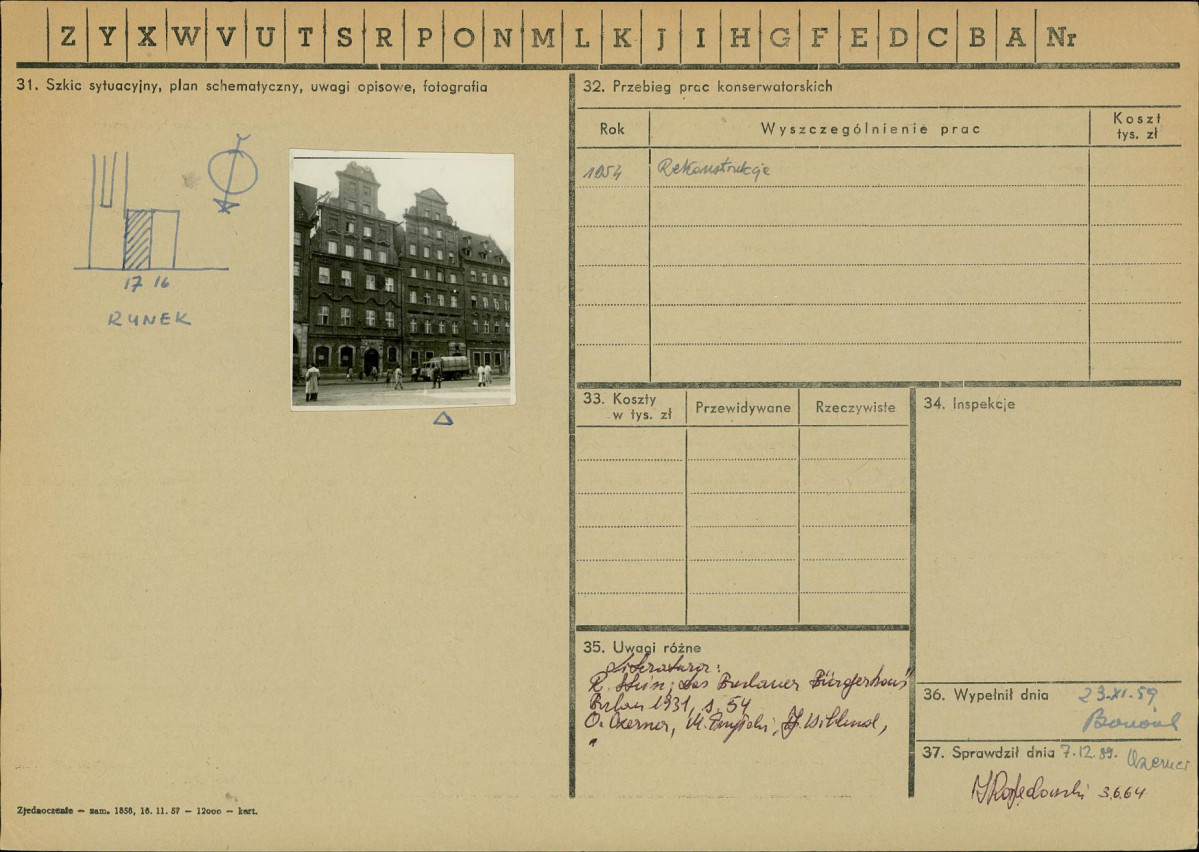 Z Y X W V U T S R P O N M L K J I H G F E D C B A Nr
31. Szkic sytuacyjny, plan schematyczny, uwagi opisowe, fotografia
17 16
RYNEK
32. Przebieg prac konserwatorskich
Rok Wyszczególnienie prac Koszt tys. zł
1954 Rekonstrukcje
33. Koszty w tys. zł Przewidywane Rzeczywiste
34. Inspekcje
35. Uwagi różne
Literatura:
R. Stein, Das Breslauer Bürgerhaus
Breslau 1931, s. 54
O. Czerner, M.
36. Wypełnił dnia 23.XI.59
37. Sprawdził dnia 7.12.89. Czerner
3.6.64
Zjednoczenie — zam. 1858, 16. 11. 57 — 12000 — kart.